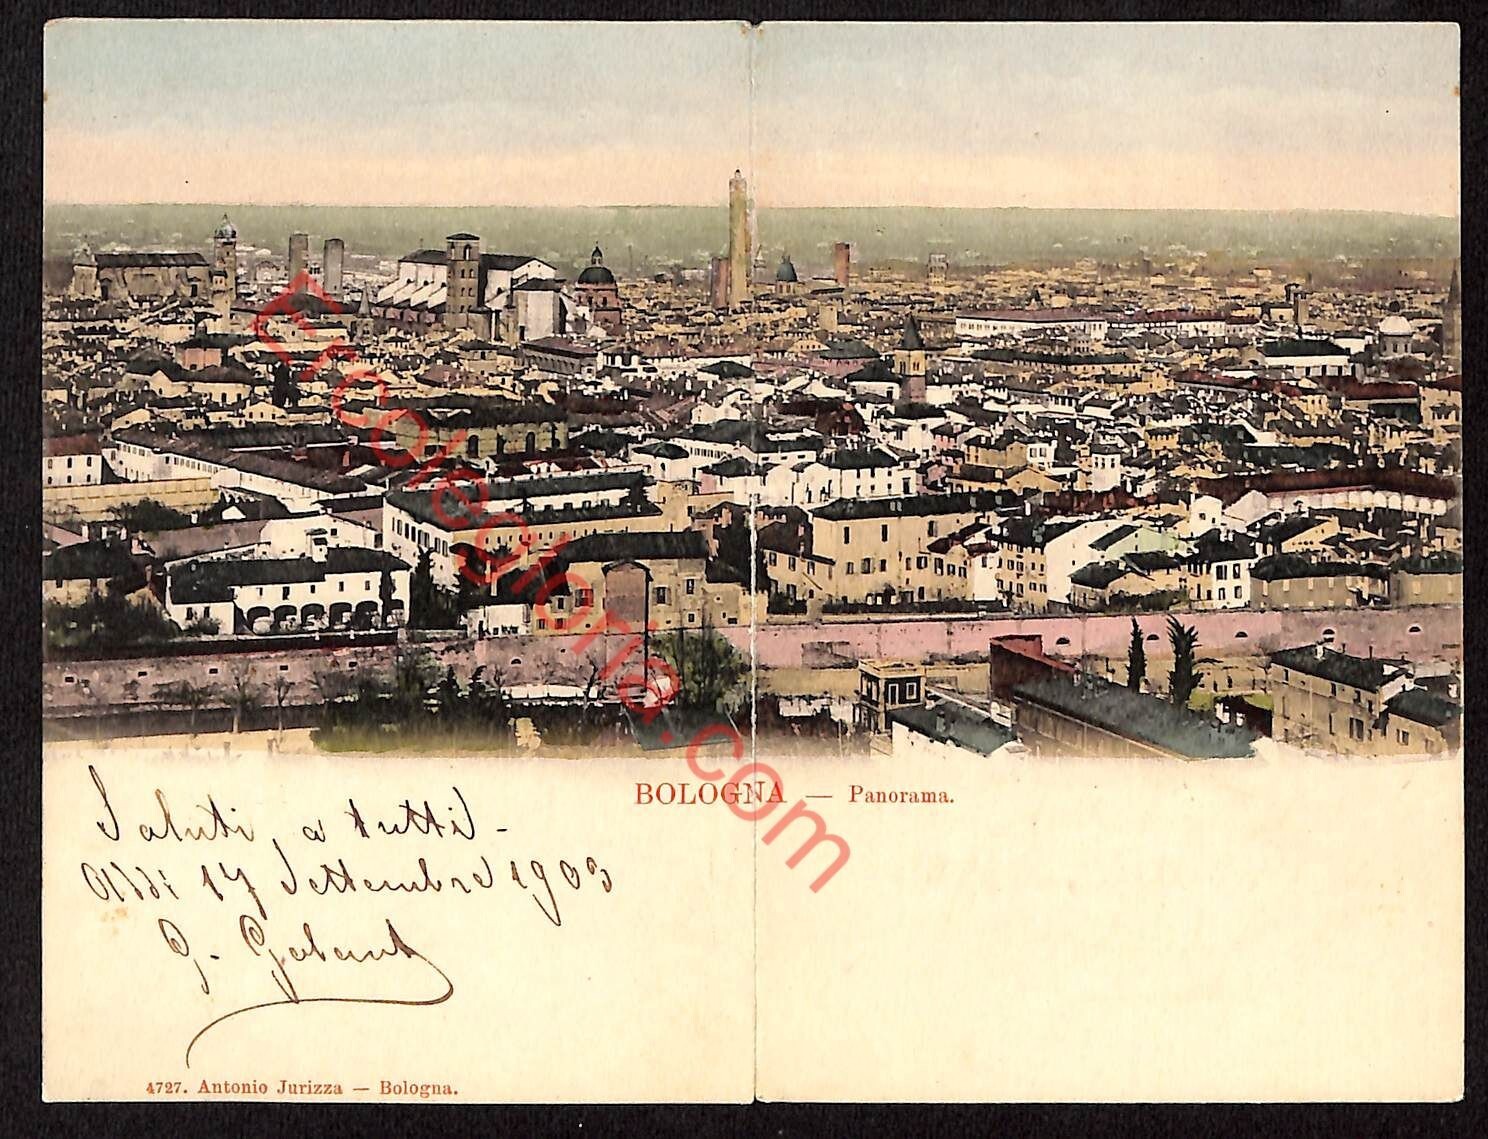 Ercolegloria.com
BOLOGNA — Panorama.
Saluti, a tutti -
Addi 17 Settembre 1903
G. Galanti
4727. Antonio Jurizza — Bologna.